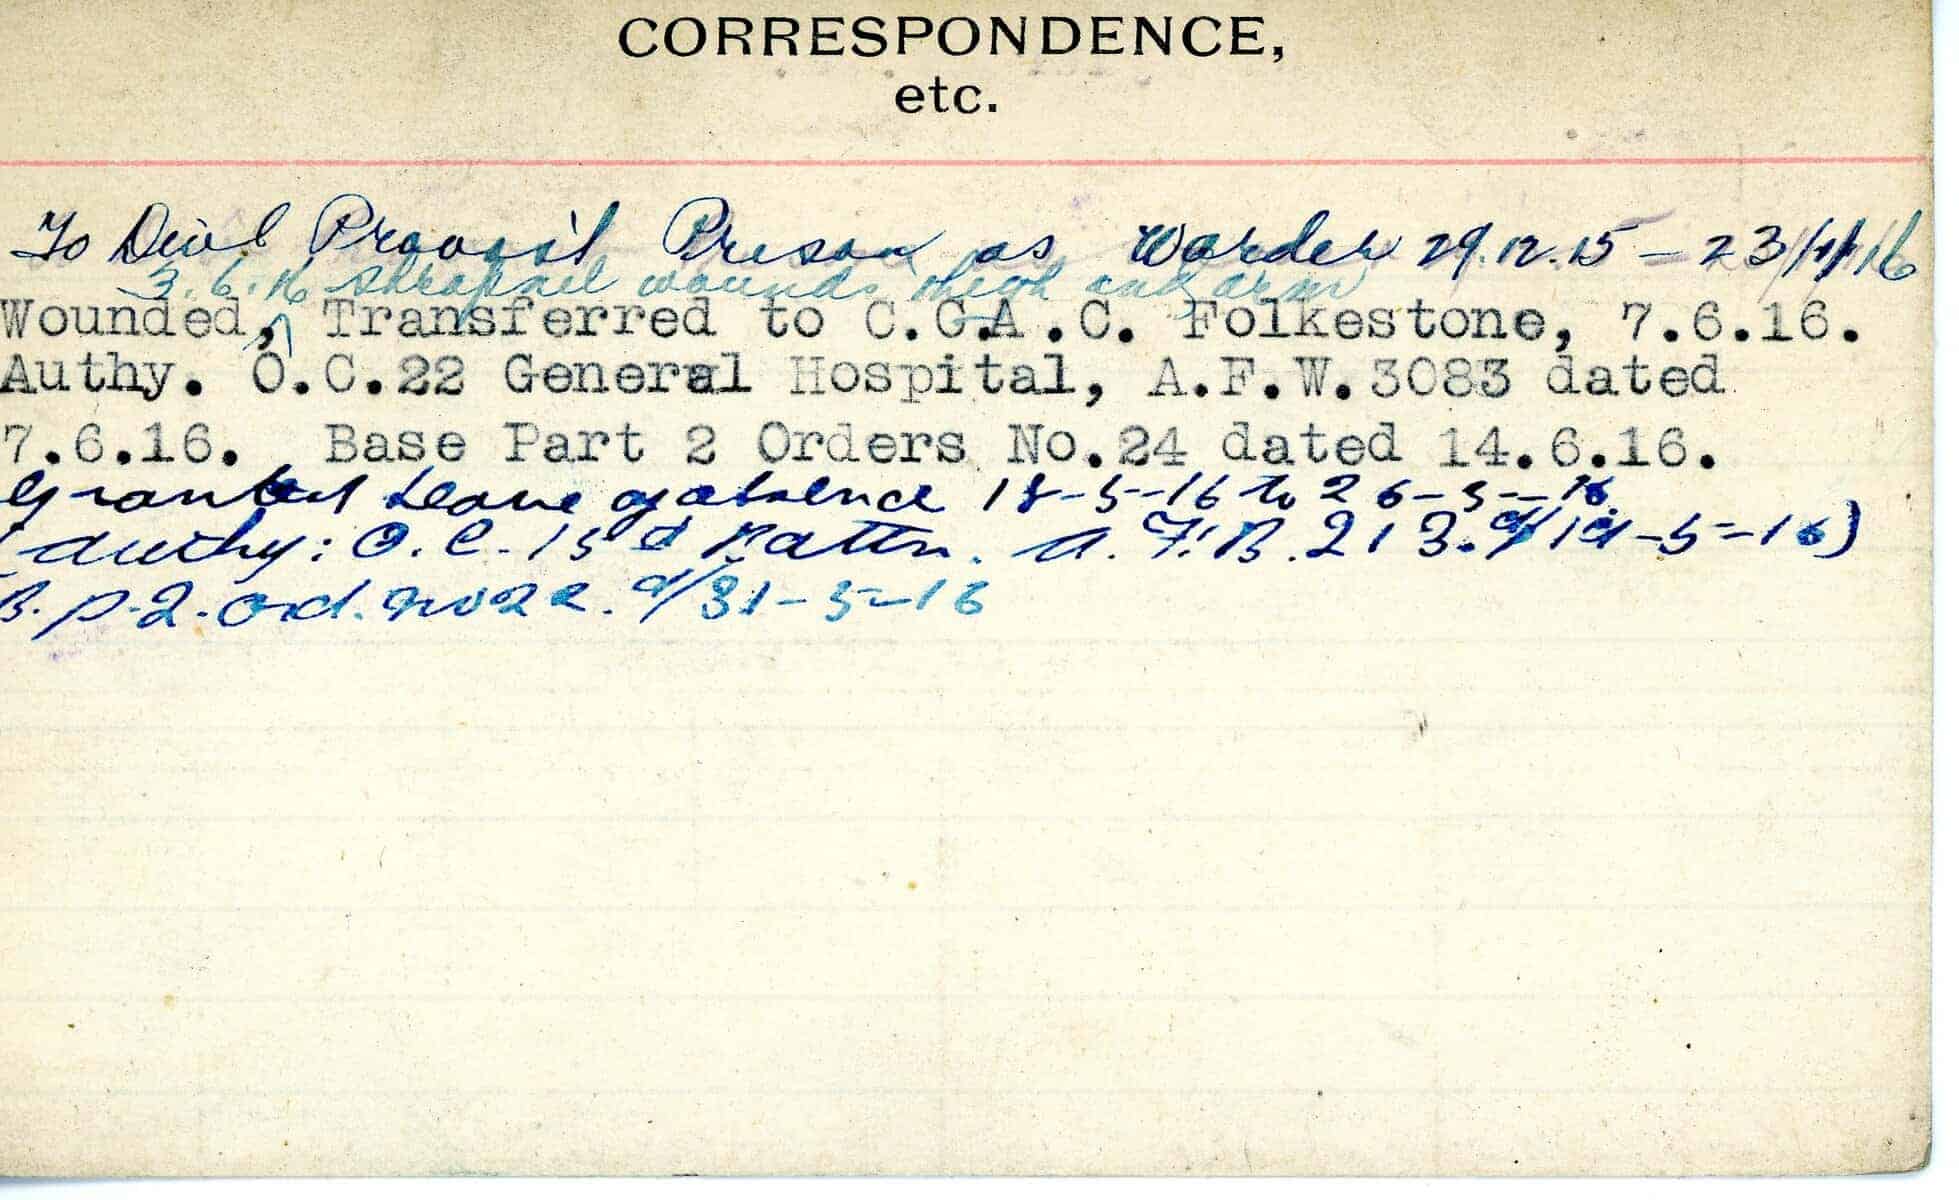 CORRESPONDENCE,
etc.
To Divl Provost Prison as Warder 29.12.15 – 23/1/16
3.6.16 shrapnel wounds thigh and arm
Wounded, Transferred to C.C.A.C. Folkestone, 7.6.16.
Authy. O.C.22 General Hospital, A.F.W.3083 dated
7.6.16. Base Part 2 Orders No.24 dated 14.6.16.
Granted Leave of absence 18-5-16 to 26-5-16
(Authy: O.C. 15th Battn. A.F.B.213. d/19-5-16)
B.P.2.Ord. No 22. d/31-5-16